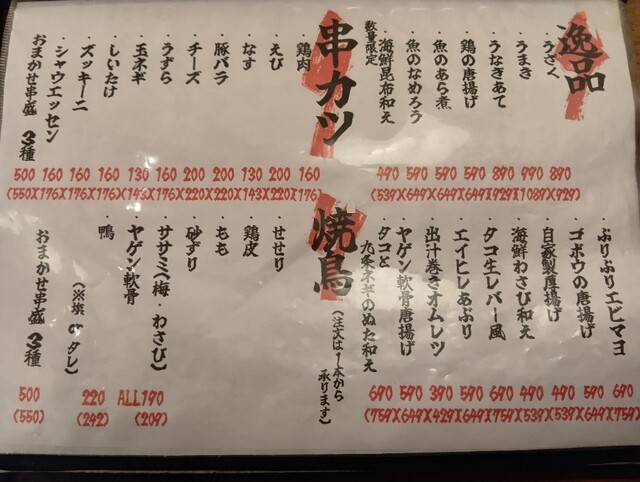 逸品
・うざく
・うまき
・うなぎあて
・鶏の唐揚げ
・魚のあら煮
・魚のなめろう
・海鮮昆布和え
数量限定
490 590 590 590 890 990 890
(539)(649)(649)(649)(979)(1089)(979)
・ぷりぷりエビマヨ
・ゴボウの唐揚げ
・自家製厚揚げ
・海鮮わさび和え
・タコ生レバー風
・エイヒレあぶり
・出汁巻きオムレツ
・ヤゲン軟骨唐揚げ
・タコと
九条ネギのぬた和え
690 590 390 590 690 490 490 590 690
(759)(649)(429)(649)(759)(539)(539)(649)(759)
串カツ
・鶏肉
・えび
・なす
・豚バラ
・チーズ
・うずら
・玉ネギ
・しいたけ
・ズッキーニ
・シャウエッセン
おまかせ串盛 3種
500 160 160 160 130 160 200 200 130 200 160
(550)(176)(176)(176)(143)(176)(220)(220)(143)(220)(176)
焼鳥
(ご注文は1本から
承ります)
・せせり
・鶏皮
・もも
・砂ずり
・ササミ(梅・わさび)
・ヤゲン軟骨
・鴨
(※塩 or タレ)
おまかせ串盛 3種
500 220 ALL190
(550) (242) (209)